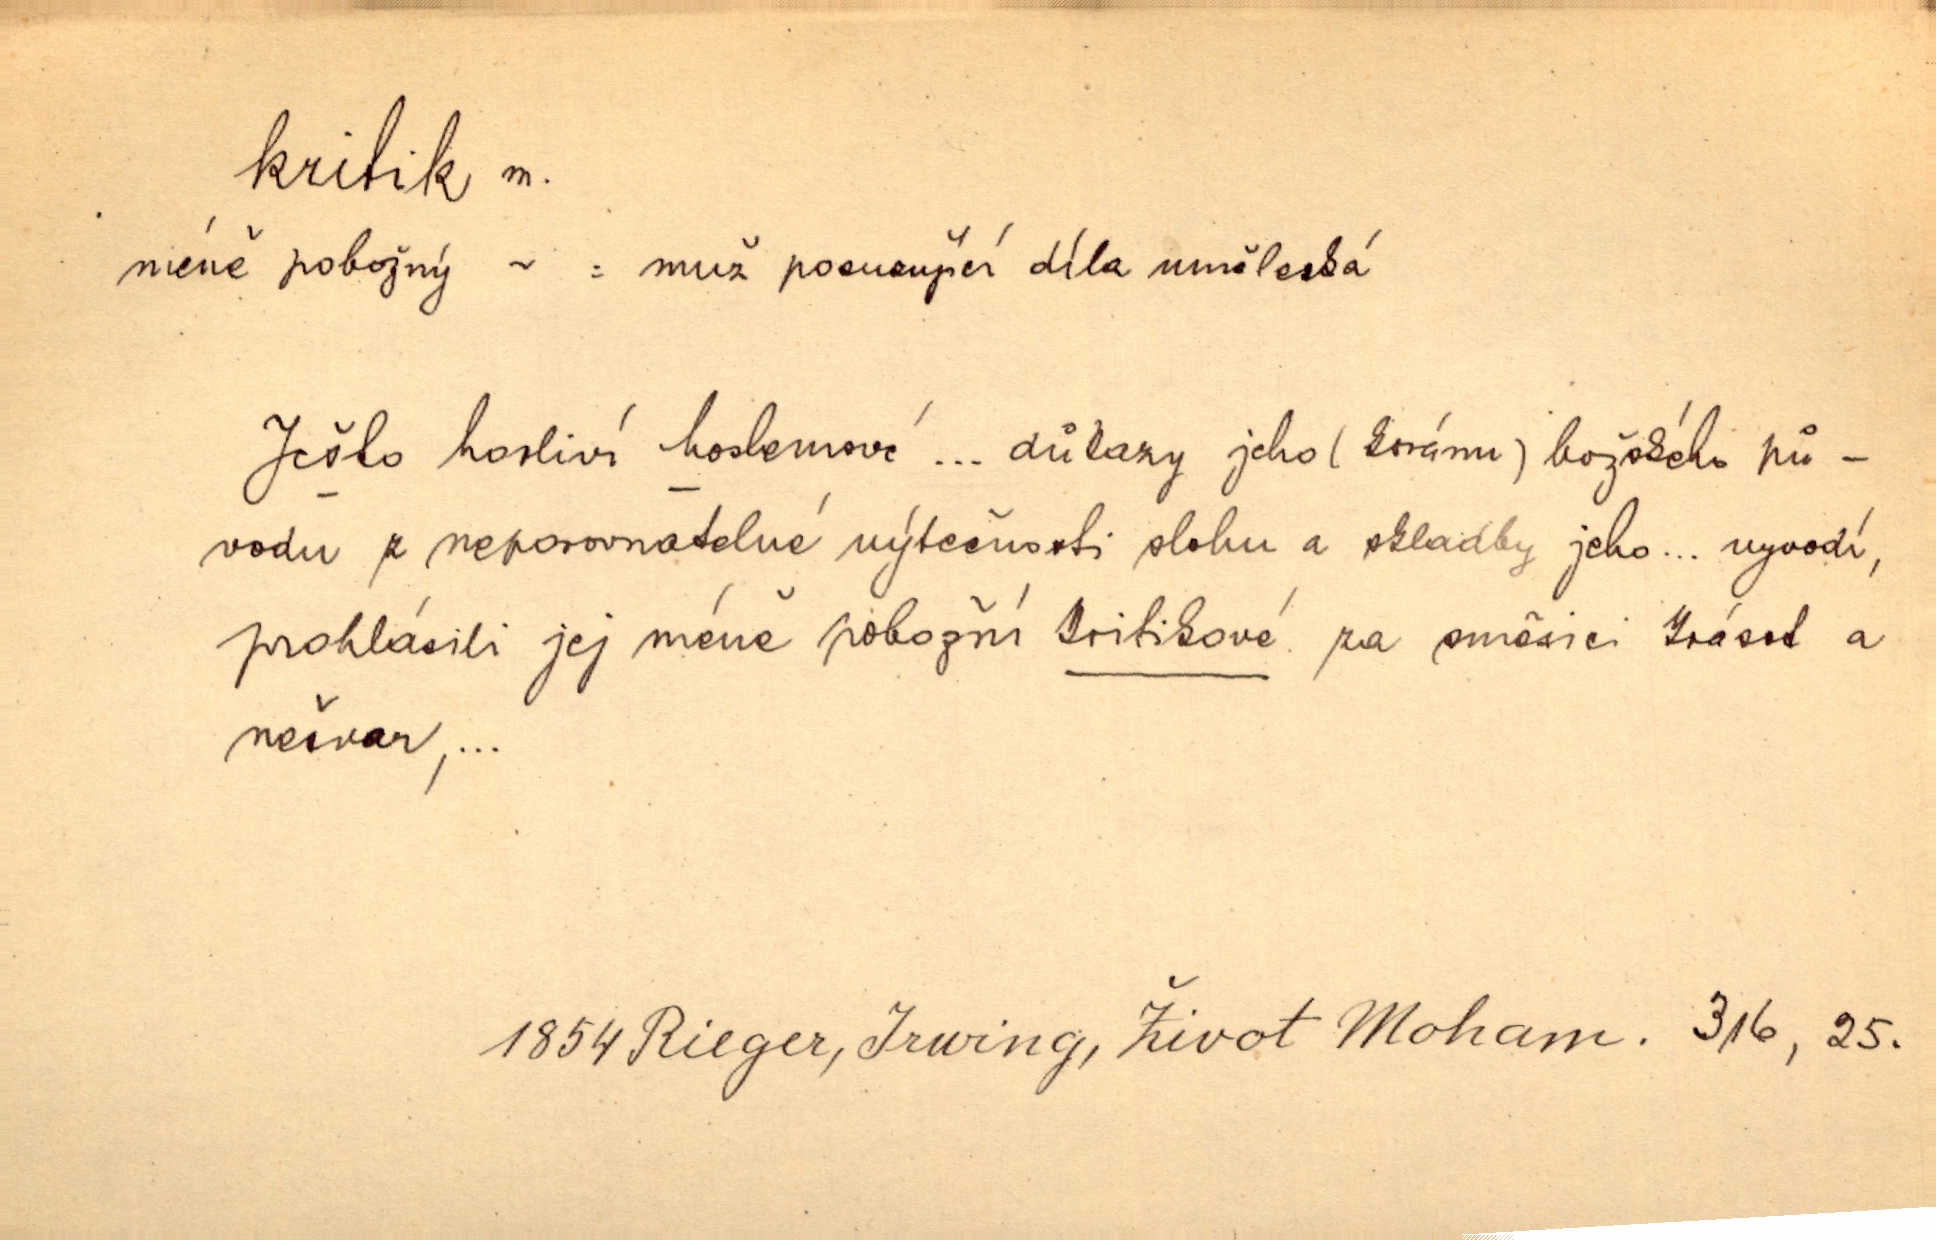 kritik m.
méně pobožný ~ = muž posuzující díla umělecká
Ješto horliví moslemové ... důkazy jeho (koránu) božského pů-
vodu z neporovnatelné výtečnosti slohu a skladby jeho... vyvodí,
prohlásili jej méně pobožní kritikové za směsici krásot a
nešvar,...
1854 Rieger, Irwing, Život Moham. 316, 25.